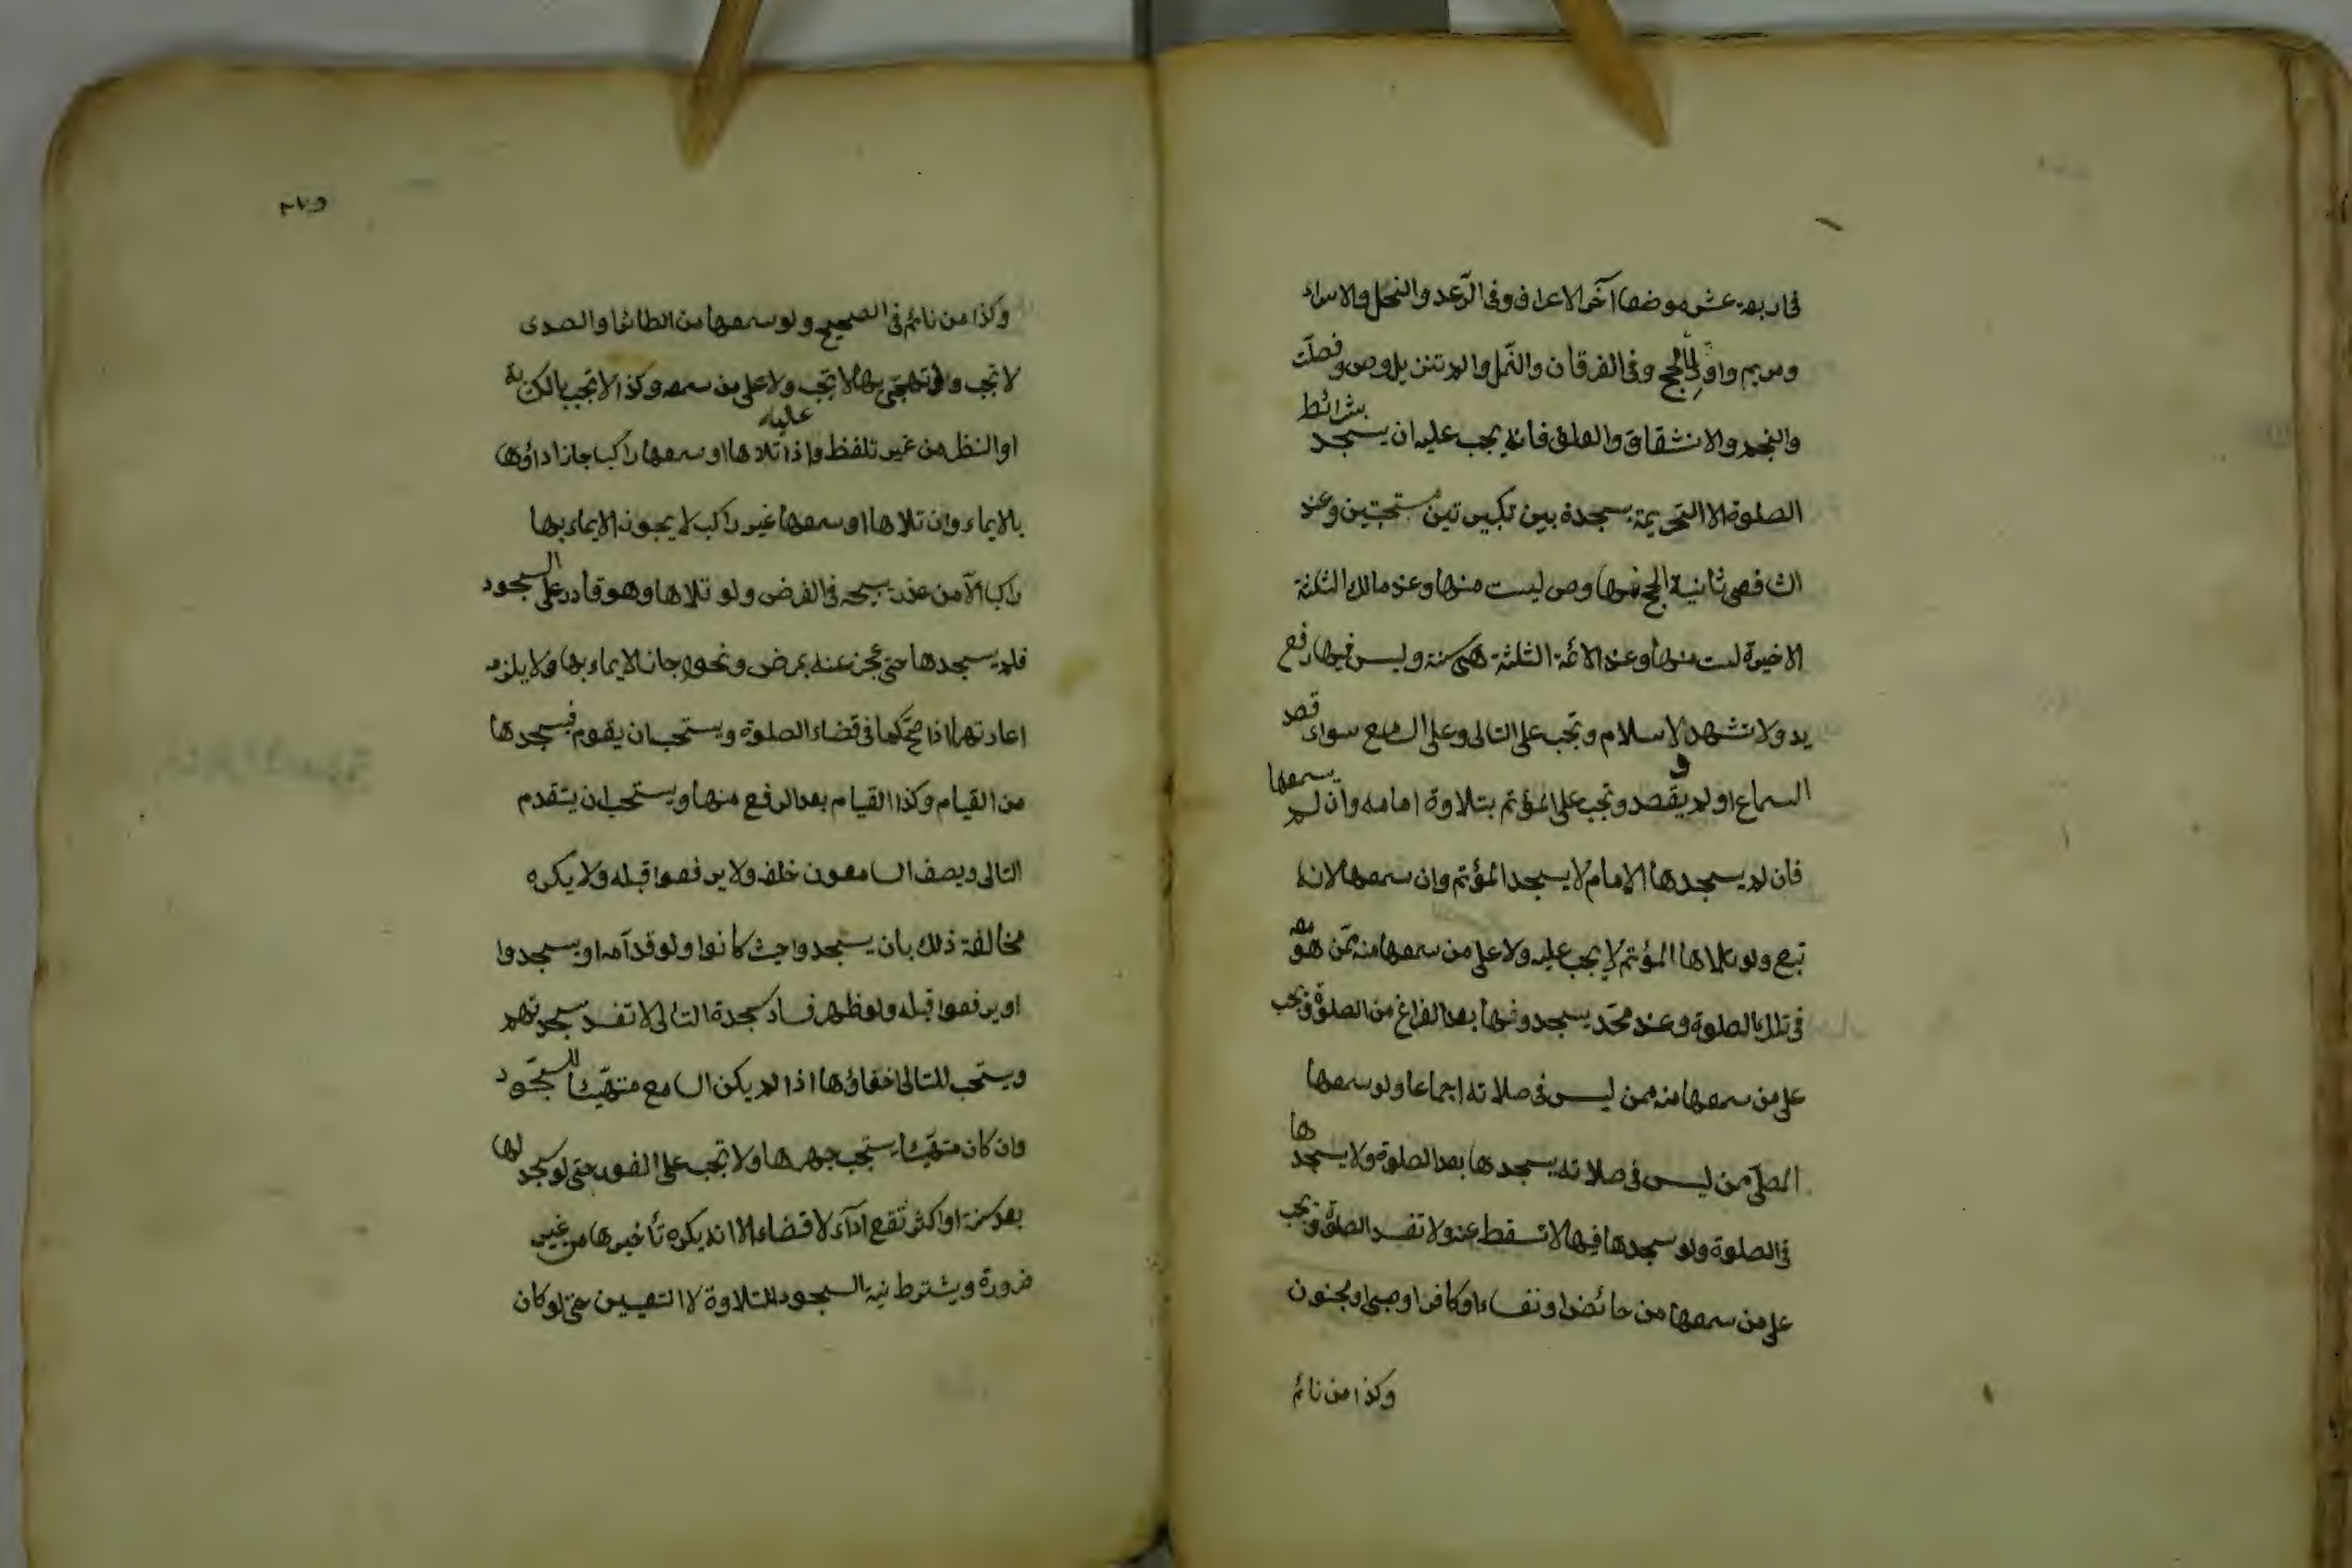 فى اربعة عشر موضعا آخر الاعراف وفى الرّعد والنحل والاسراء
ومريم واولى الحج وفى الفرقان والنّمل والم تنزيل وص وفصلّت
والنجم والانشقاق والعلق فانه يجب عليه ان يسجد بشرائط
الصلوة الا التحريمة سجدة بين تكبيرتين مستحبتين وعند
الشافعى ثانية الحج منها وص ليست منها وعند مالك الثلثة
الاخيرة ليست منها وعند الائمة الثلثة هى سنة وليس فيها رفع
يد ولا تشهد ولا سلام وتجب على التالى وعلى السامع سواء قصد
السماع او لم يقصد وتجب على المؤتم بتلاوة امامه وان لم يسمعها
فان لم يسجدها الامام لا يسجد المؤتم وان سمعها لانه
تبع ولو تلاها المؤتم لا يجب عليه ولا على من سمعها منه ممّن هو معه
فى تلك الصلوة وعند محمّد يسجدونها بعد الفراغ من الصلوة وتجب
على من سمعها منه ممن ليس فى صلاته اجماعا ولو سمعها
المصلّى من ليس فى صلاته يسجدها بعد الصلوة ولا يسجدها
فى الصلوة ولو سجدها فيها لا تسقط عنه ولا تفسد الصلوة وتجب
على من سمعها من حائض او نفساء او كافر او صبى او مجنون
وكذا من نائم
٢٧٥
وكذا من نائم فى الصحيح ولو سمعها من الطائر او الصدى
لا تجب وفى تهجّى بها لا تجب ولا على من سمعه وكذا لا تجب بالكتابة
او النظر من غير تلفظ واذا تلاها او سمعها راكبا جاز اداؤها عليه
بالايماء وان تلاها او سمعها غير راكب لا يجوز الايماء بها
راكبا الّا من عذر يبيحه فى الفرض ولو تلاها وهو قادر على السجود
فلم يسجدها حتى عجز عنه بمرض ونحوه جاز الايماء بها ولا يلزمه
اعادتها اذا صحّ كما فى قضاء الصلوة ويستحب ان يقوم فيسجدها
من القيام وكذا القيام بعد الرفع منها ويستحب ان يتقدم
التالى ويصف السامعون خلفه ولا يرفعوا قبله ولا يكره
مخالفة ذلك بان يسجدوا حيث كانوا ولو قدّامه او يسجدوا
او يرفعوا قبله ولو ظهر فساد سجدة التالى لا تفسد سجدتهم
ويستحب للتالى اخفاؤها اذا لم يكن السامع متهيّئا للسّجود
وان كان متهيّئا يستحب جهرها ولا تجب على الفور حتى لو سجد لها
بعد سنة او اكثر تقع اداء لا قضاء الا انه يكره تأخيرها من غير
ضرورة ويشترط نية السجود للتلاوة لا التعيين حتى لو كان